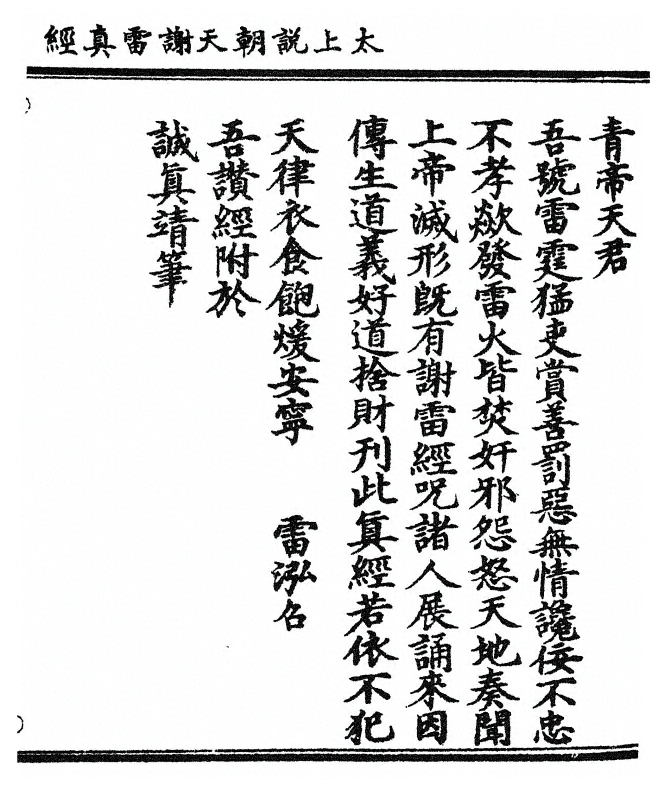 太上説朝天謝雷真經
青帝天君
吾號雷霆猛吏賞善罰惡無情讒佞不忠
不孝歘發雷火皆焚奸邪怨怒天地奏聞
上帝滅形既有謝雷經呪諸人展誦來因
傳生道義好道捨財刋此真經若依不犯
天律衣食飽煖安寧 雷泓名
吾讚經附於
誠真靖筆